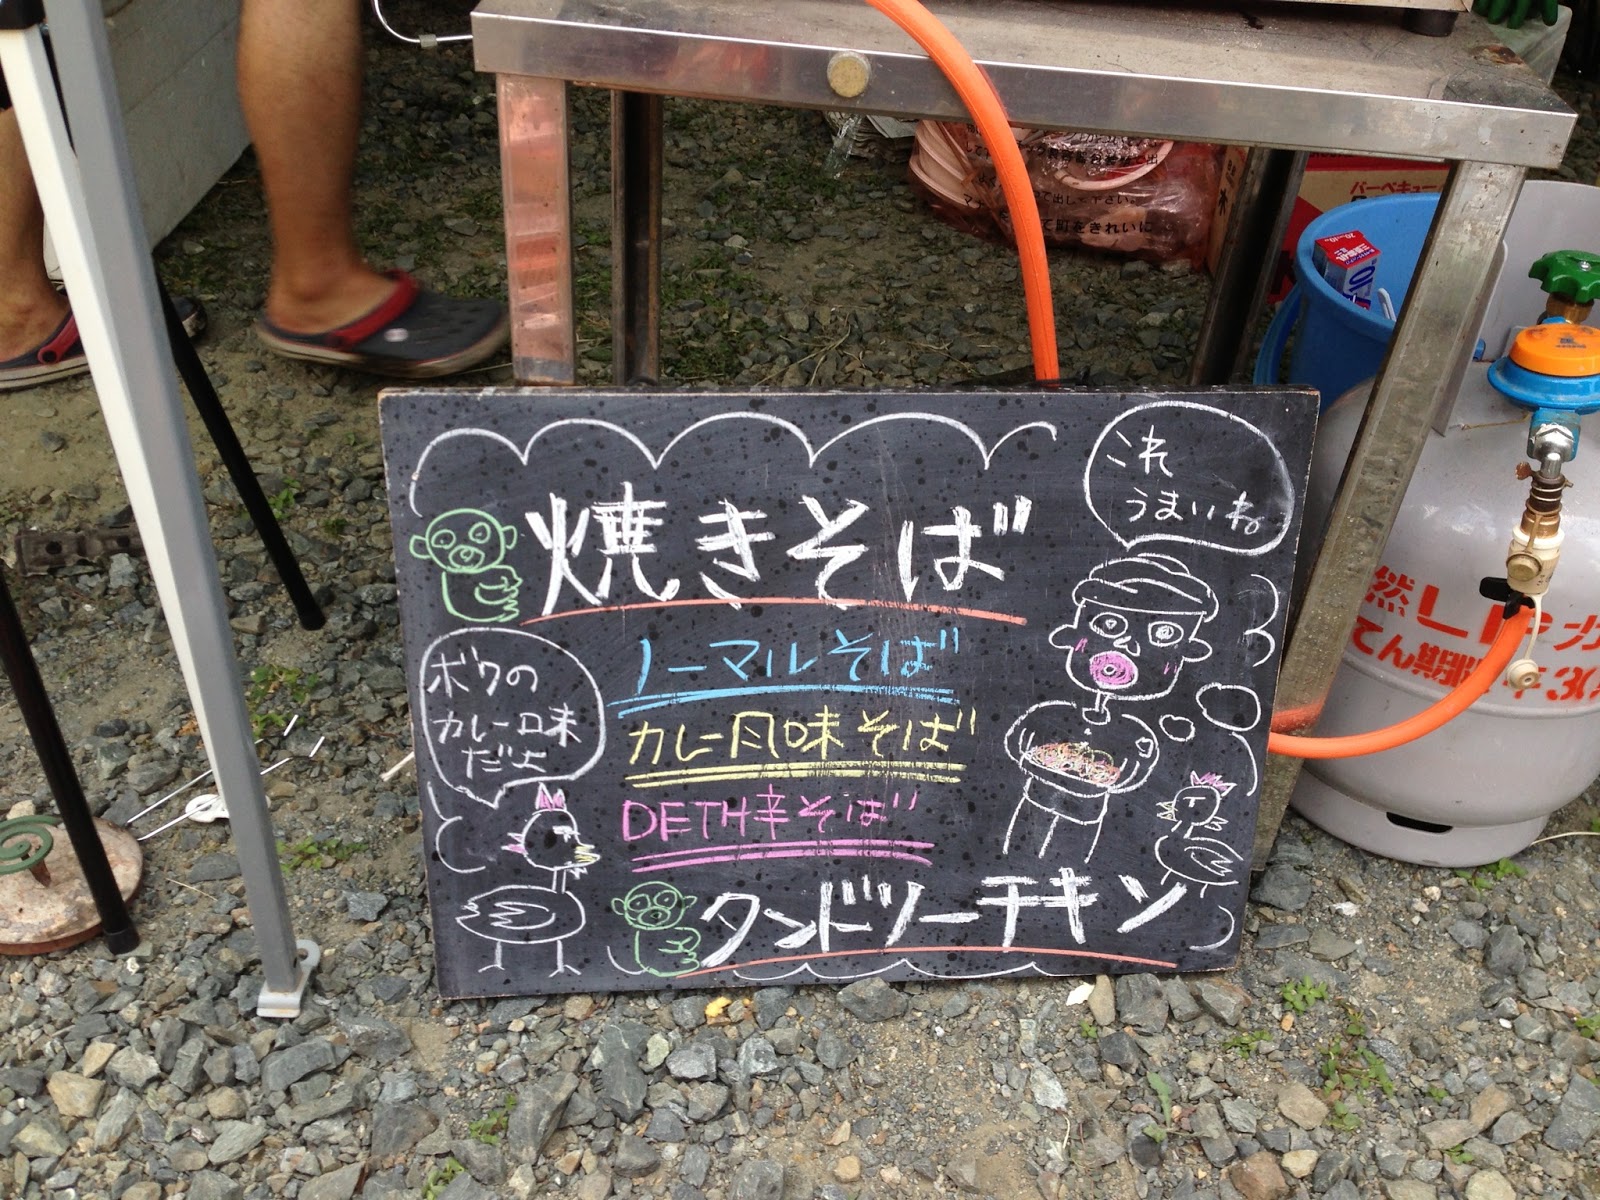 これ
うまいね。
焼きそば
ノーマルそば
ボクの
カレー味
だよ
カレー風味そば
DETH辛そば
タンドリーチキン
バーベキュー
町をきれいに